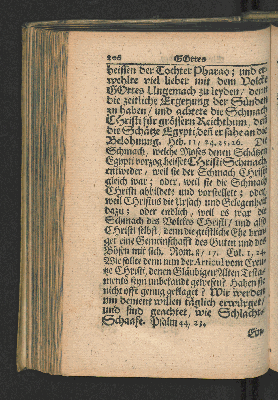 208 GOttes
heissen der Tochter Pharao; und er-
wehlte viel lieber mit dem Volcke
GOttes Ungemach zu leyden/ denn
die zeitliche Ergetzung der Sünden
zu haben/ und achtete die Schmach
CHristi für grössern Reichthum, den
die Schätze Egypti; den er sahe an die
Belohnung. Heb. 11/ 24. 25. 26. Die
Schmach, welche Moses denen Schätzen
Egypti vorzog, heisset Christi Schmach
entweder, weil sie der Schmach CHristi
gleich war; oder, weil sie die Schmach
CHristi abbildete und vorstellete; oder,
weil Christus die Ursach und Gelegenheit
dazu; oder endlich, weil es war die
Schmach des Volckes CHristi/ und also
CHristi selbst, denn die geistliche Ehe brin-
get eine Gemeinschafft des Guten und des
Bösen mit sich. Rom. 8/ 17. Col. 1, 24.
Wie sollte denn nun der Articul vom Creu-
tze Christi, denen Gläubigen Alten Testa-
ments seyn unbekandt gewesen? Haben sie
nicht offt genug geklaget? Wir werden
um deinent willen täglich erwürget/
und sind geachtet, wie Schlacht-
Schaafe. Psalm 44, 23.